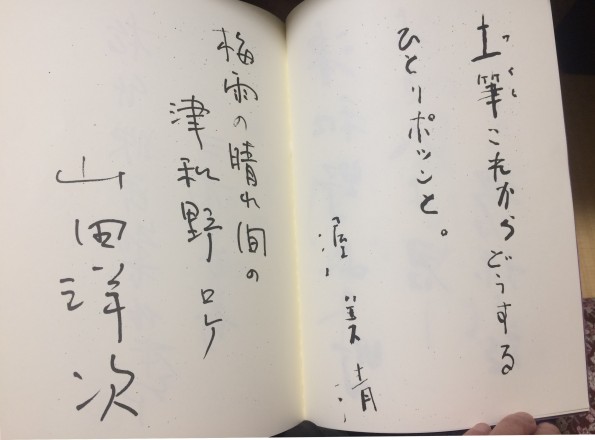 土筆これからどうする
つくし
ひとりポツンと。
渥美清
梅雨の晴れ間の
津和野ロケ
山田洋次